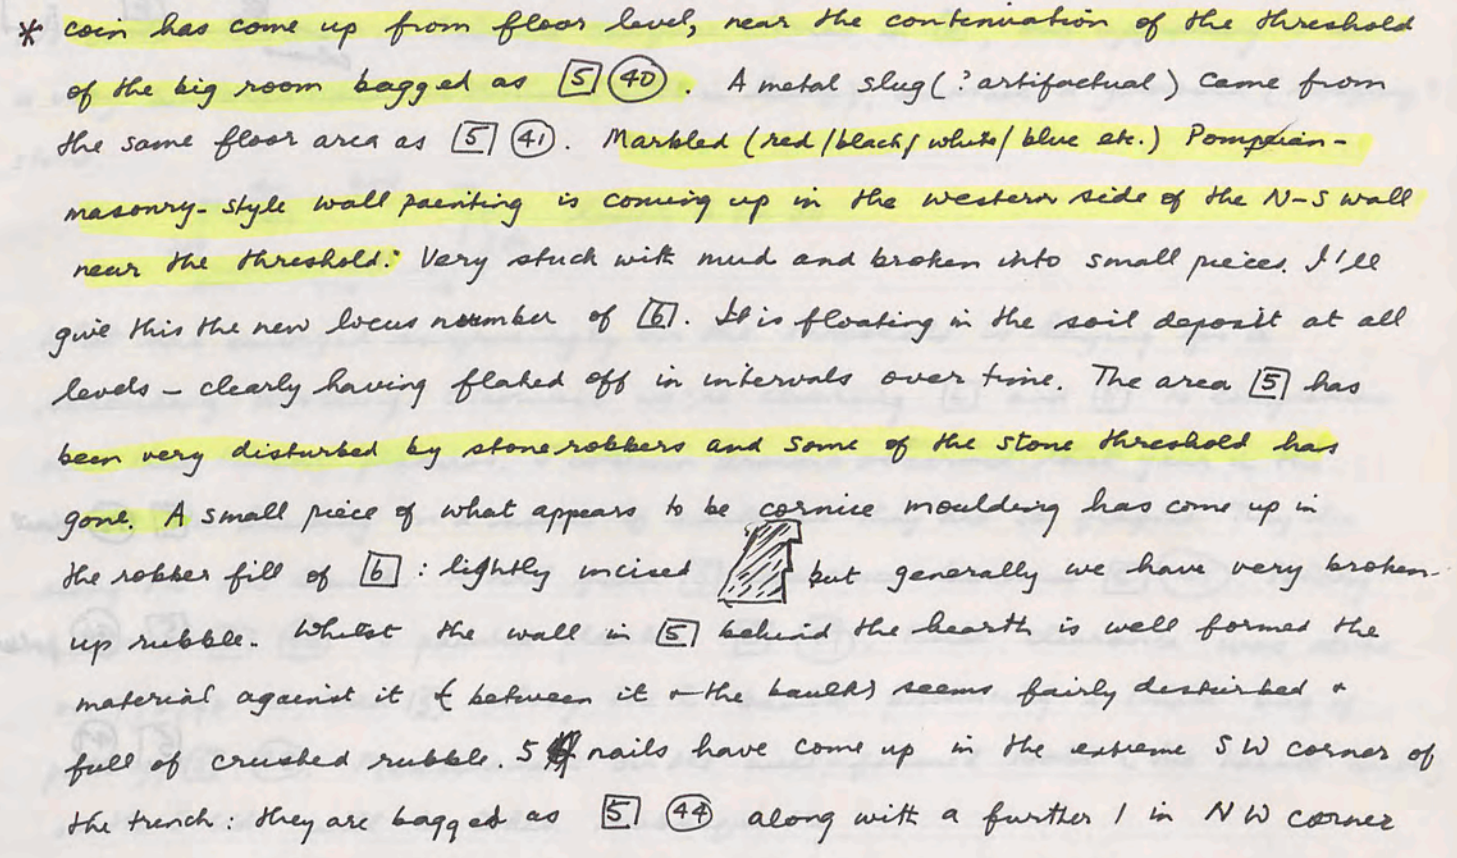 * coin has come up from floor level, near the continuation of the threshold
of the big room bagged as [5] (40). A metal slug (?artifactual) came from
the same floor area as [5] (41). Marbled (red/black/white/blue etc.) Pompeian-
masonry-style wall painting is coming up in the western side of the N-S wall
near the threshold. Very stuck with mud and broken into small pieces. I'll
give this the new locus number of [6]. It is floating in the soil deposit at all
levels – clearly having flaked off in intervals over time. The area [5] has
been very disturbed by stone robbers and some of the stone threshold has
gone. A small piece of what appears to be cornice moulding has come up in
the robber fill of [6] : lightly incised but generally we have very broken-
up rubble. Whilst the wall in [5] behind the hearth is well formed the
material against it (between it + the baulk) seems fairly disturbed +
full of crushed rubble. 5 nails have come up in the extreme SW corner of
the trench: they are bagged as [5] (44) along with a further 1 in NW corner